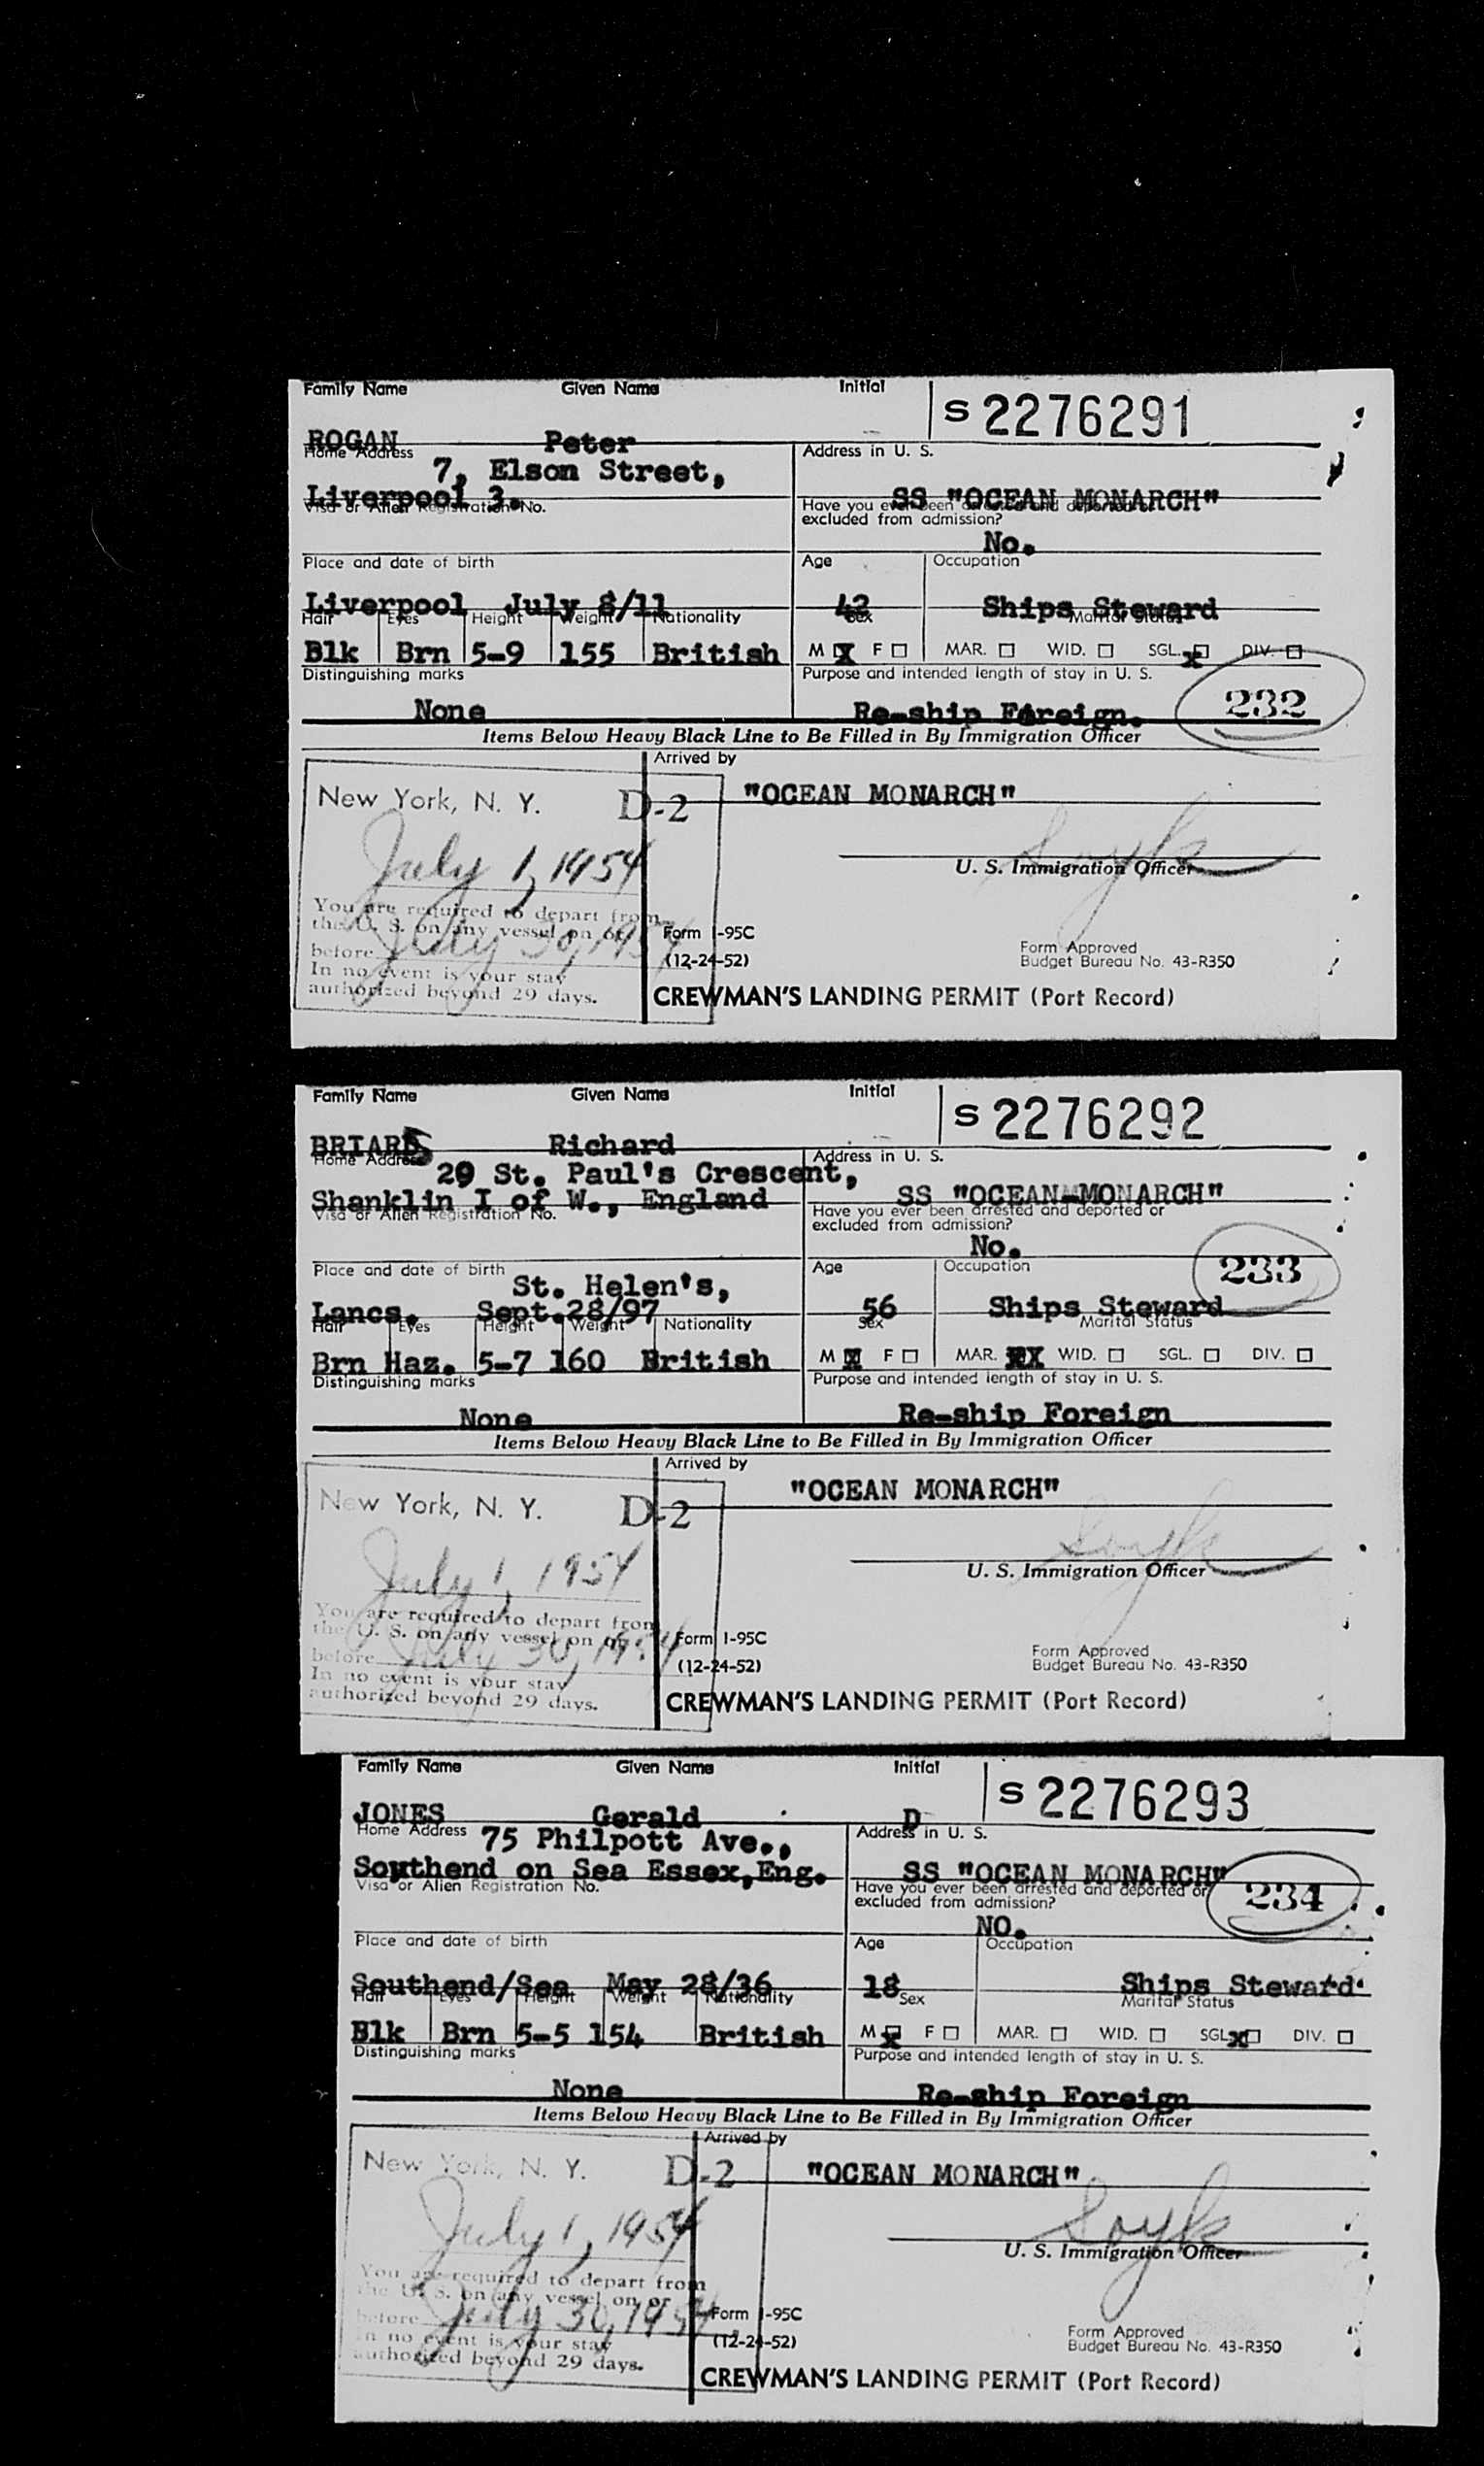 Family Name Given Name Initial
S 2276291
ROGAN Peter
Home Address
7, Elson Street,
Liverpool 3.
Address in U. S.
SS "OCEAN MONARCH"
Visa or Alien Registration No.
Have you ever been arrested and deported or
excluded from admission?
No.
Place and date of birth Age Occupation
Liverpool July 8/11 42 Ships Steward
Hair Eyes Height Weight Nationality Sex Marital Status
Blk Brn 5-9 155 British M X F MAR. WID. SGL. X DIV.
Distinguishing marks Purpose and intended length of stay in U. S.
None Re-ship Foreign. 232
Items Below Heavy Black Line to Be Filled in By Immigration Officer
Arrived by
New York, N. Y. D-2 "OCEAN MONARCH"
July 1, 1954
U. S. Immigration Officer
You are required to depart from
the U. S. on any vessel on or
before July 30, 1954
In no event is your stay
authorized beyond 29 days.
Form I-95C
(12-24-52)
Form Approved
Budget Bureau No. 43-R350
CREWMAN'S LANDING PERMIT (Port Record)
Family Name Given Name Initial
S 2276292
BRIARS Richard
Home Address
29 St. Paul's Crescent,
Shanklin I of W., England
Address in U. S.
SS "OCEAN MONARCH"
Visa or Alien Registration No.
Have you ever been arrested and deported or
excluded from admission?
No.
233
Place and date of birth Age Occupation
St. Helen's,
Lancs. Sept.28/97 56 Ships Steward
Hair Eyes Height Weight Nationality Sex Marital Status
Brn Haz. 5-7 160 British M X F MAR. X WID. SGL. DIV.
Distinguishing marks Purpose and intended length of stay in U. S.
None Re-ship Foreign
Items Below Heavy Black Line to Be Filled in By Immigration Officer
Arrived by
New York, N. Y. D-2 "OCEAN MONARCH"
July 1, 1954
U. S. Immigration Officer
You are required to depart from
the U. S. on any vessel on or
before July 30, 1954
In no event is your stay
authorized beyond 29 days.
Form I-95C
(12-24-52)
Form Approved
Budget Bureau No. 43-R350
CREWMAN'S LANDING PERMIT (Port Record)
Family Name Given Name Initial
S 2276293
JONES Gerald D
Home Address
75 Philpott Ave.,
Southend on Sea Essex,Eng.
Address in U. S.
SS "OCEAN MONARCH"
Visa or Alien Registration No.
Have you ever been arrested and deported or
excluded from admission?
234
NO.
Place and date of birth Age Occupation
Southend/Sea May 28/36 18 Ships Steward
Hair Eyes Height Weight Nationality Sex Marital Status
Blk Brn 5-5 154 British M X F MAR. WID. SGL. X DIV.
Distinguishing marks Purpose and intended length of stay in U. S.
None Re-ship Foreign
Items Below Heavy Black Line to Be Filled in By Immigration Officer
Arrived by
New York, N. Y. D-2 "OCEAN MONARCH"
July 1, 1954
U. S. Immigration Officer
You are required to depart from
the U. S. on any vessel on or
before July 30, 1954
In no event is your stay
authorized beyond 29 days.
Form I-95C
(12-24-52)
Form Approved
Budget Bureau No. 43-R350
CREWMAN'S LANDING PERMIT (Port Record)